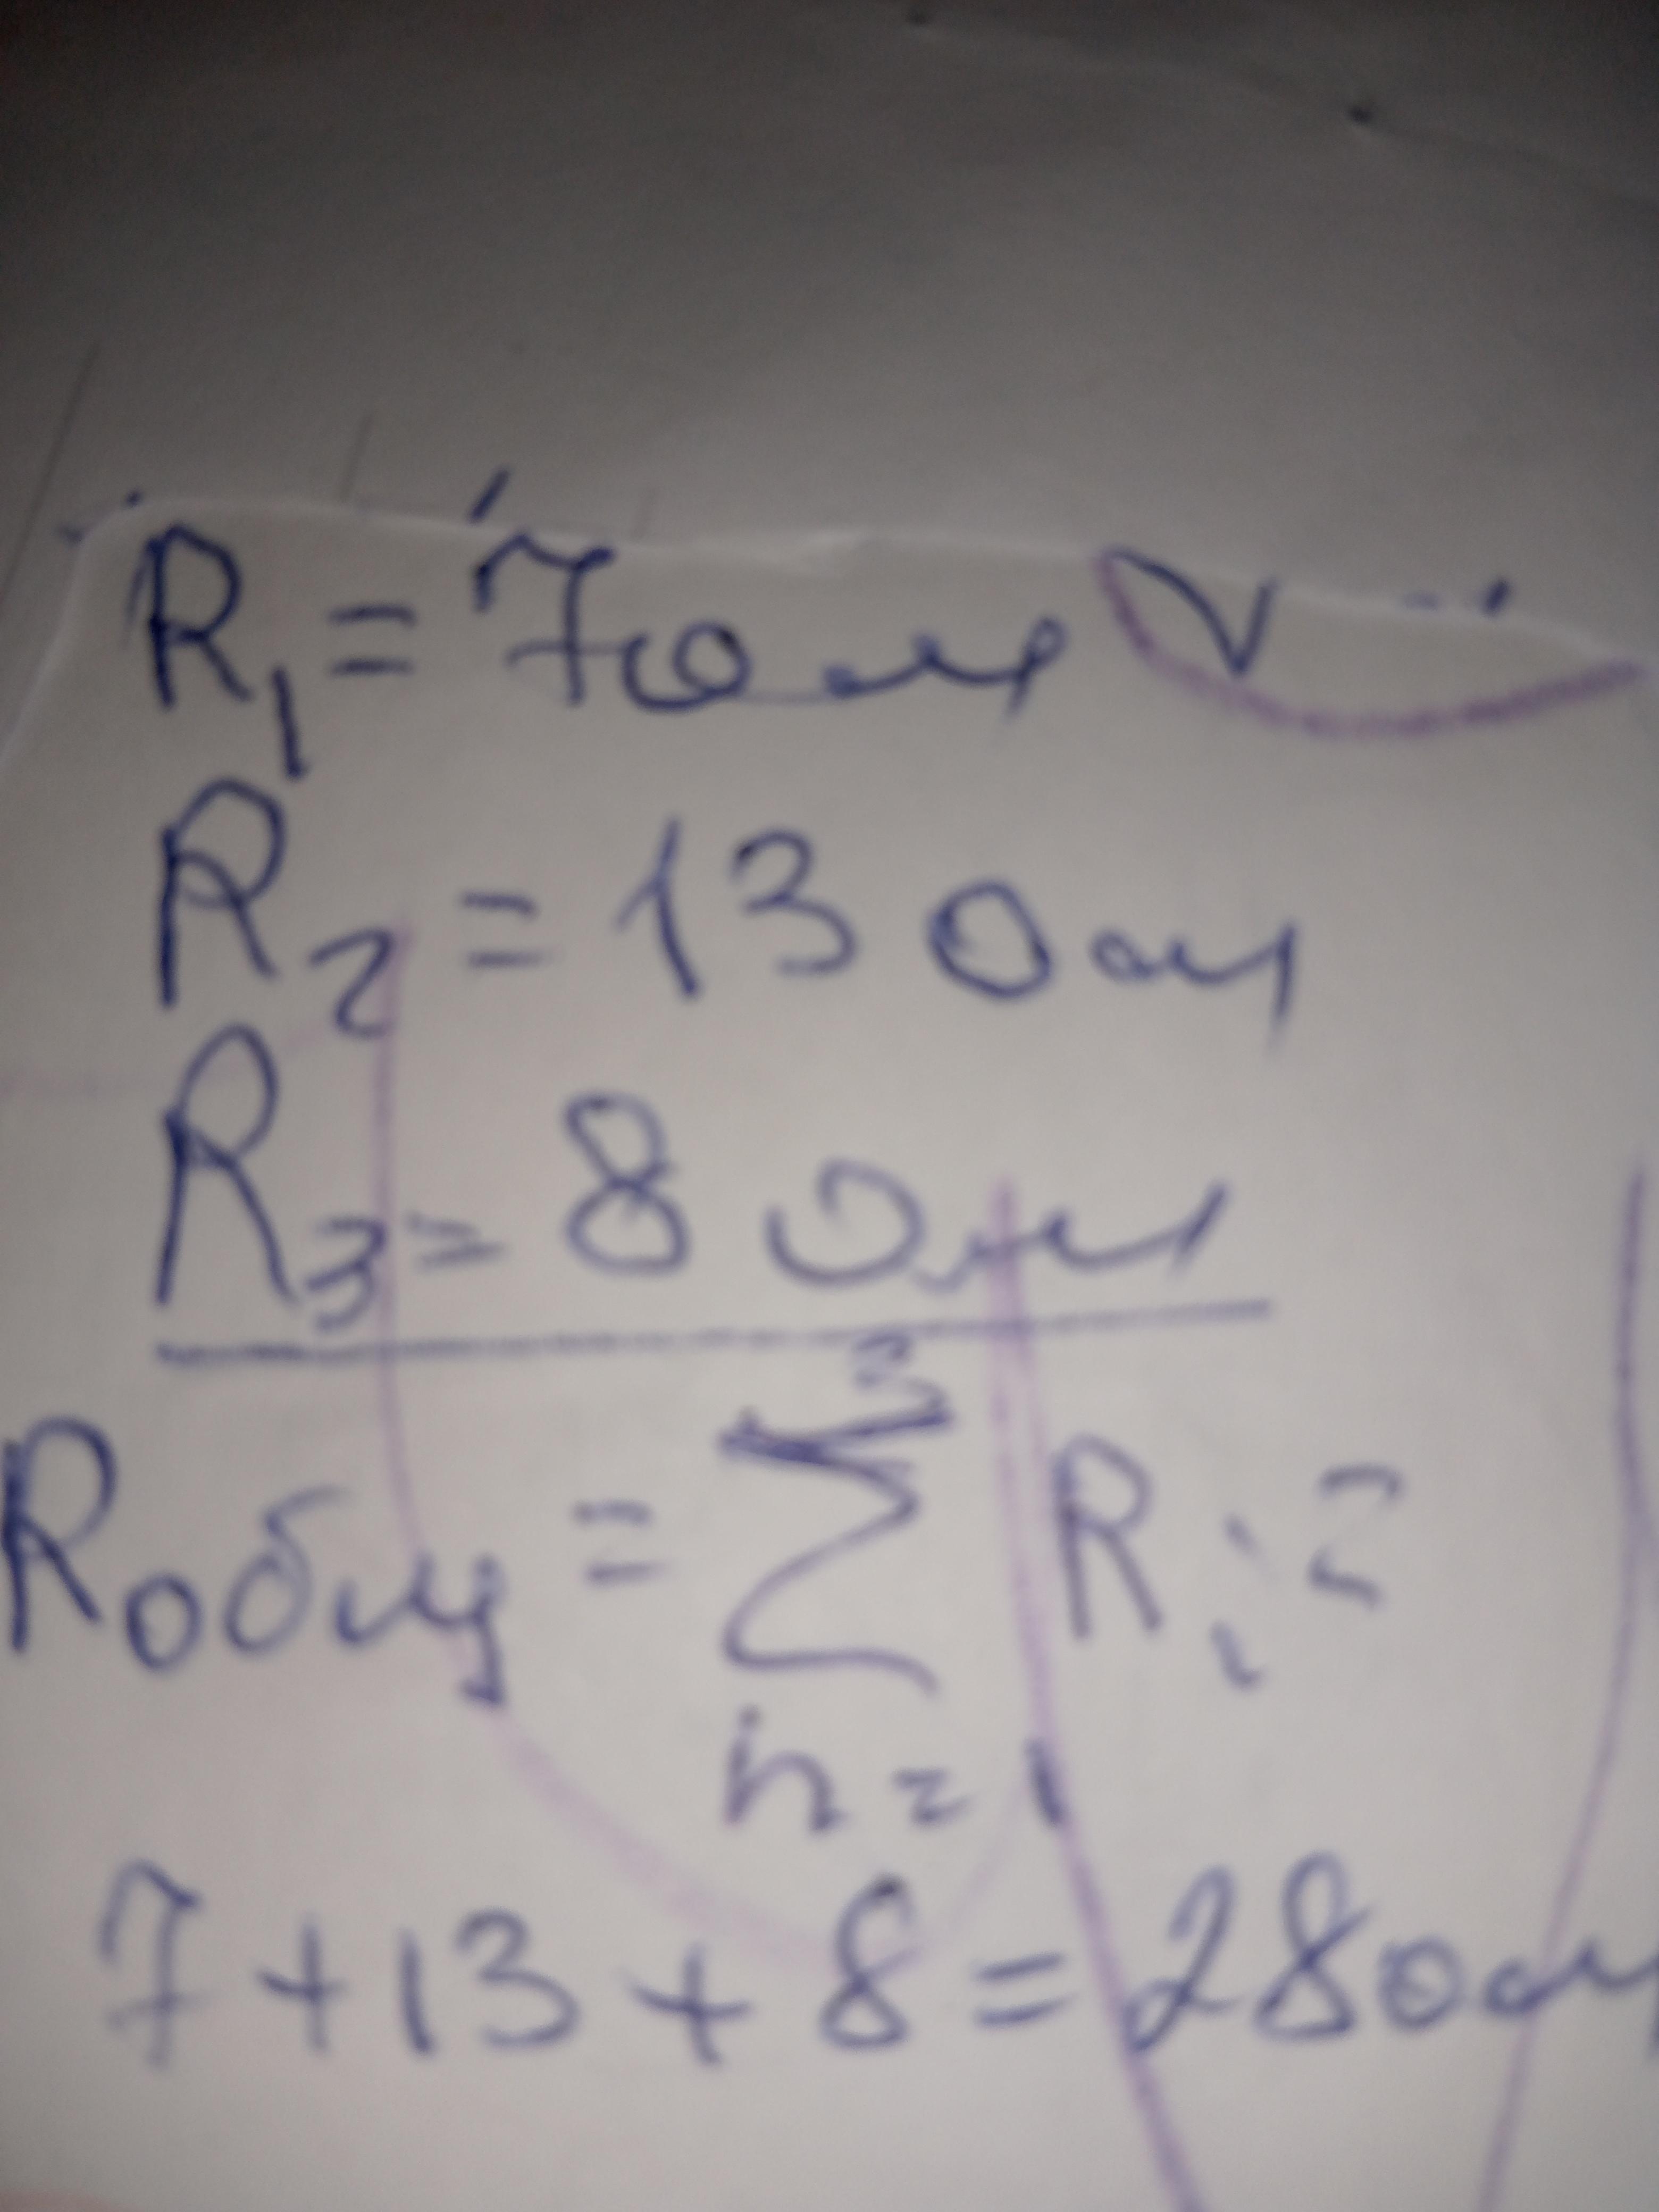 R₁ = 7 Ом
R₂ = 13 Ом
R₃ = 8 Ом
3
Rобщ = Σ Ri =
n = 1
7 + 13 + 8 = 28 Ом